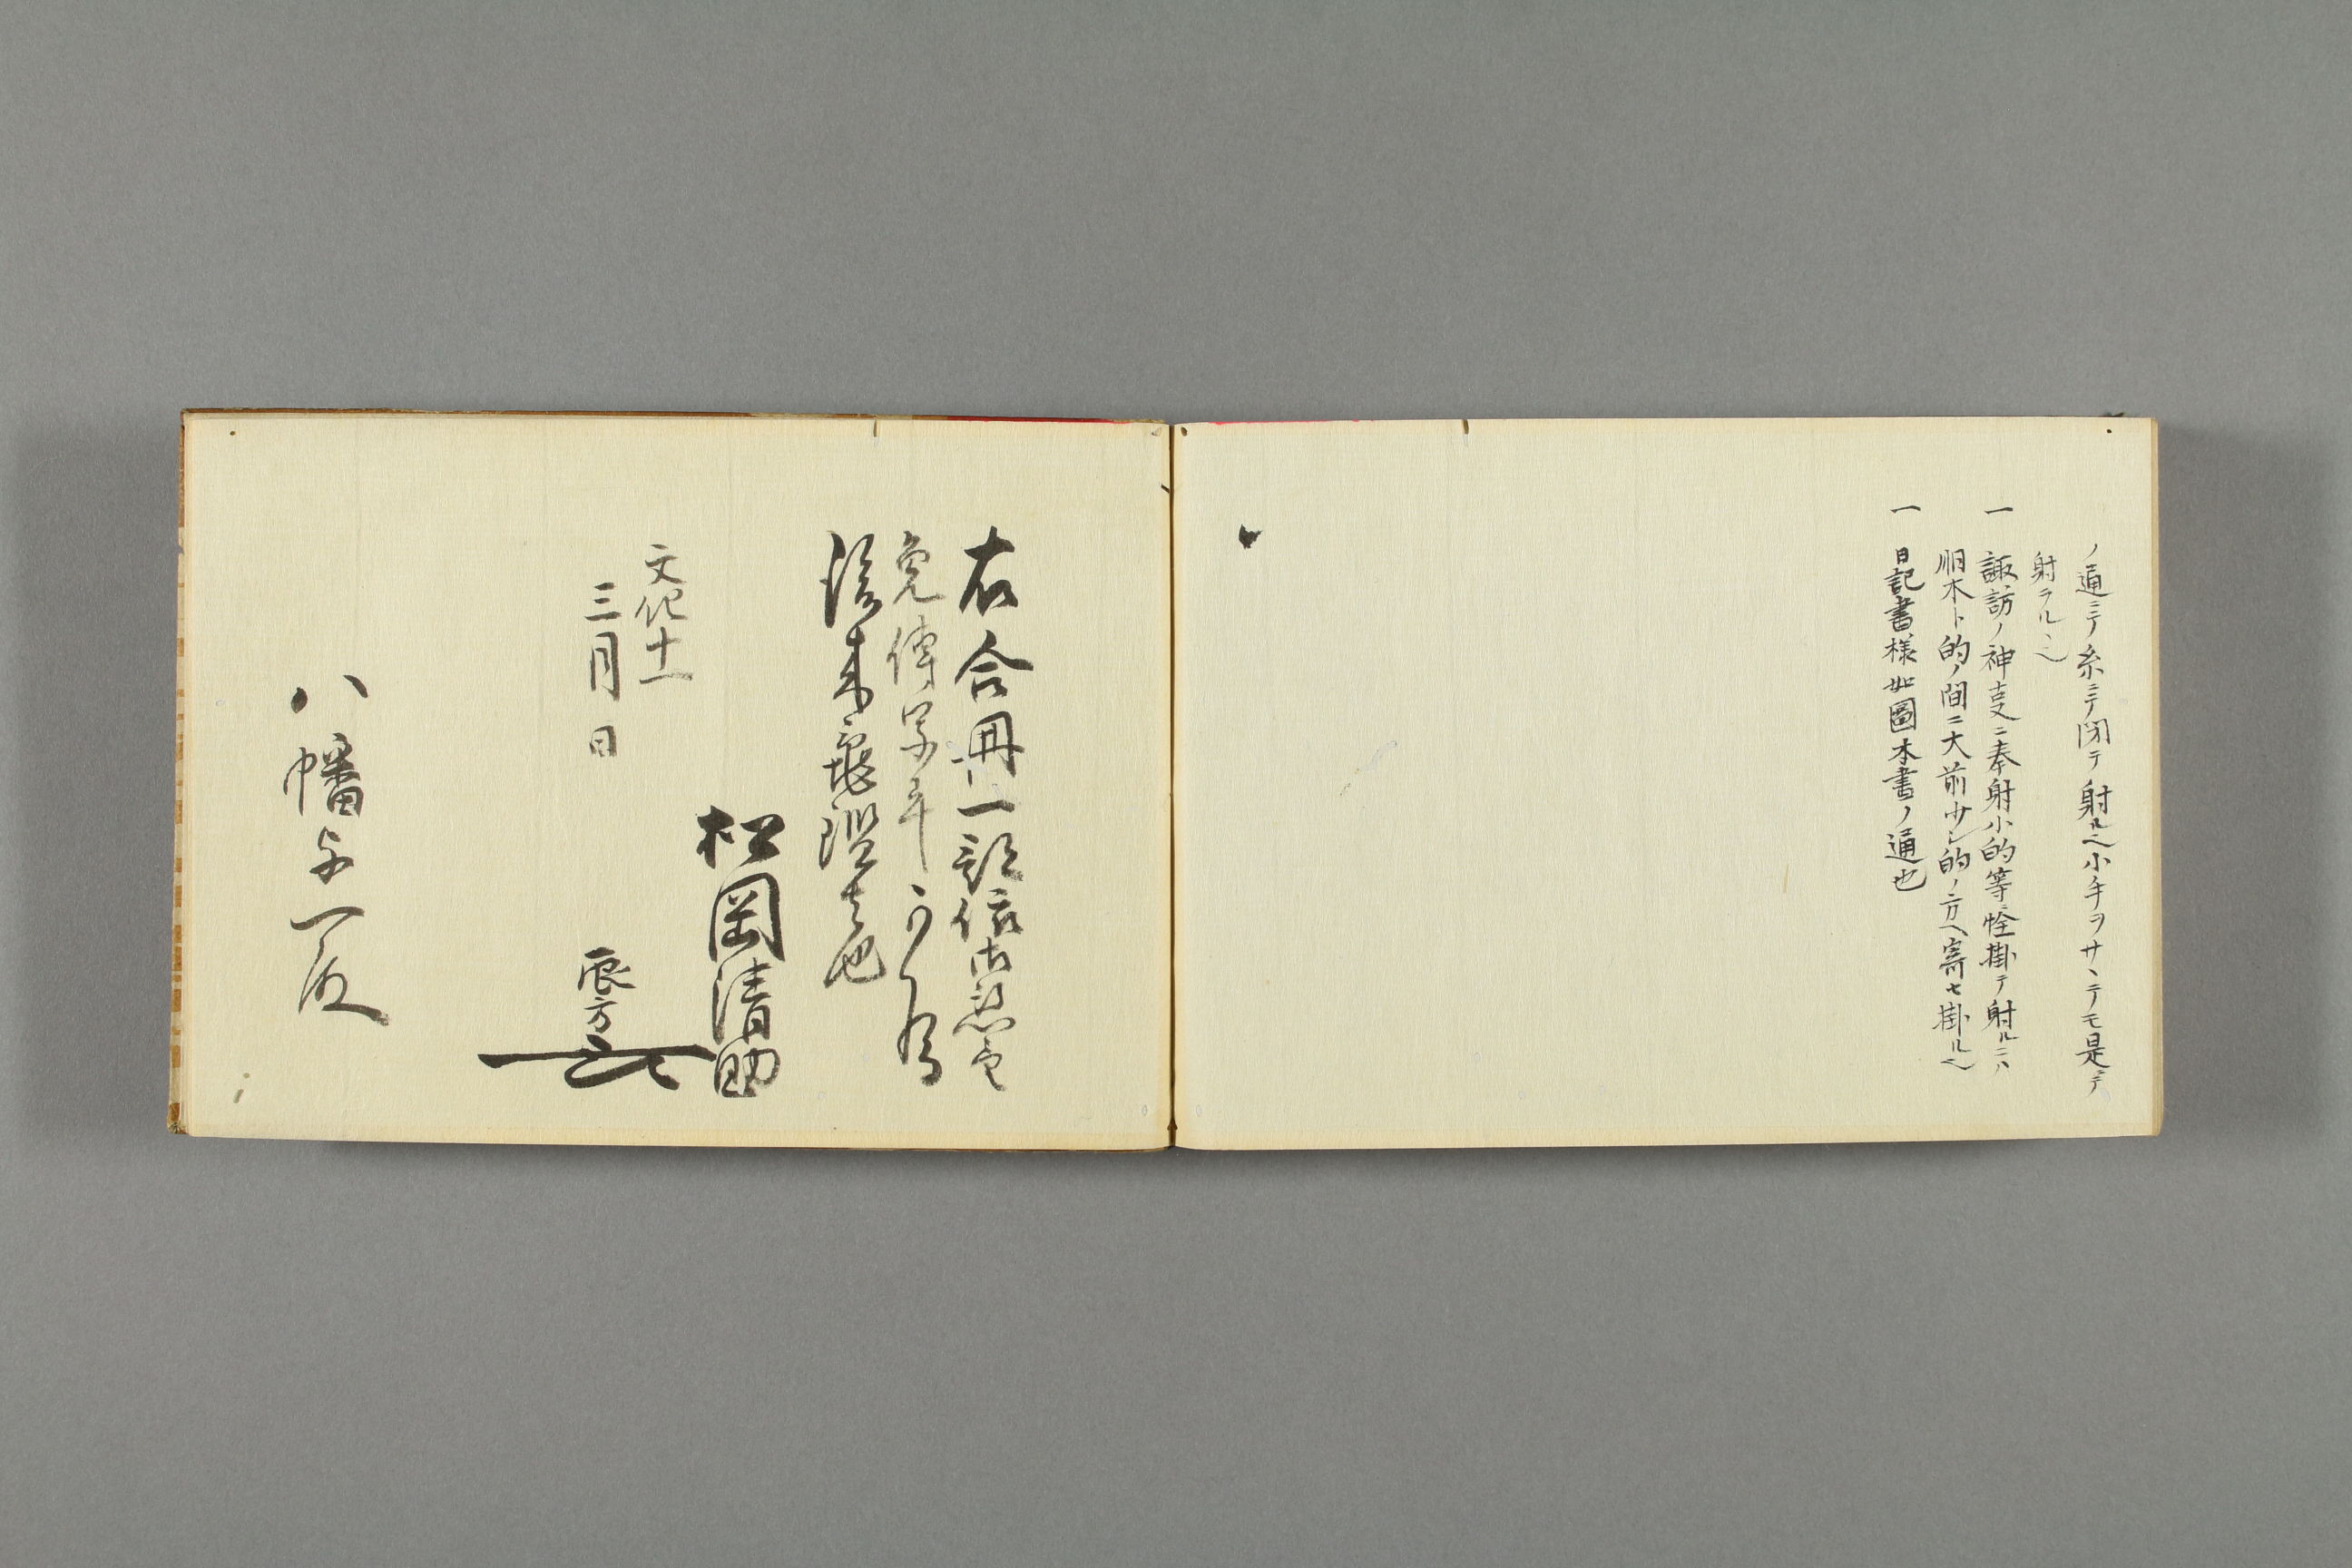 ノ通ニテ糸ニテ閉テ射ル也小手ヲサヽテモ是ニテ
射ラルヽ也
一 諏訪ノ神事ニ奉射小的等ニ幣掛テ射ルニハ
木ト的ノ間ニ大前少シ的ノ方ヘ寄セ掛ル也
一 日記書様如圖本書ノ通也
右合冊一部依御懇望
免傳写畢可為
後来亀鑑者也
文化十一
三月日
松岡清助
辰方
八幡与一殿